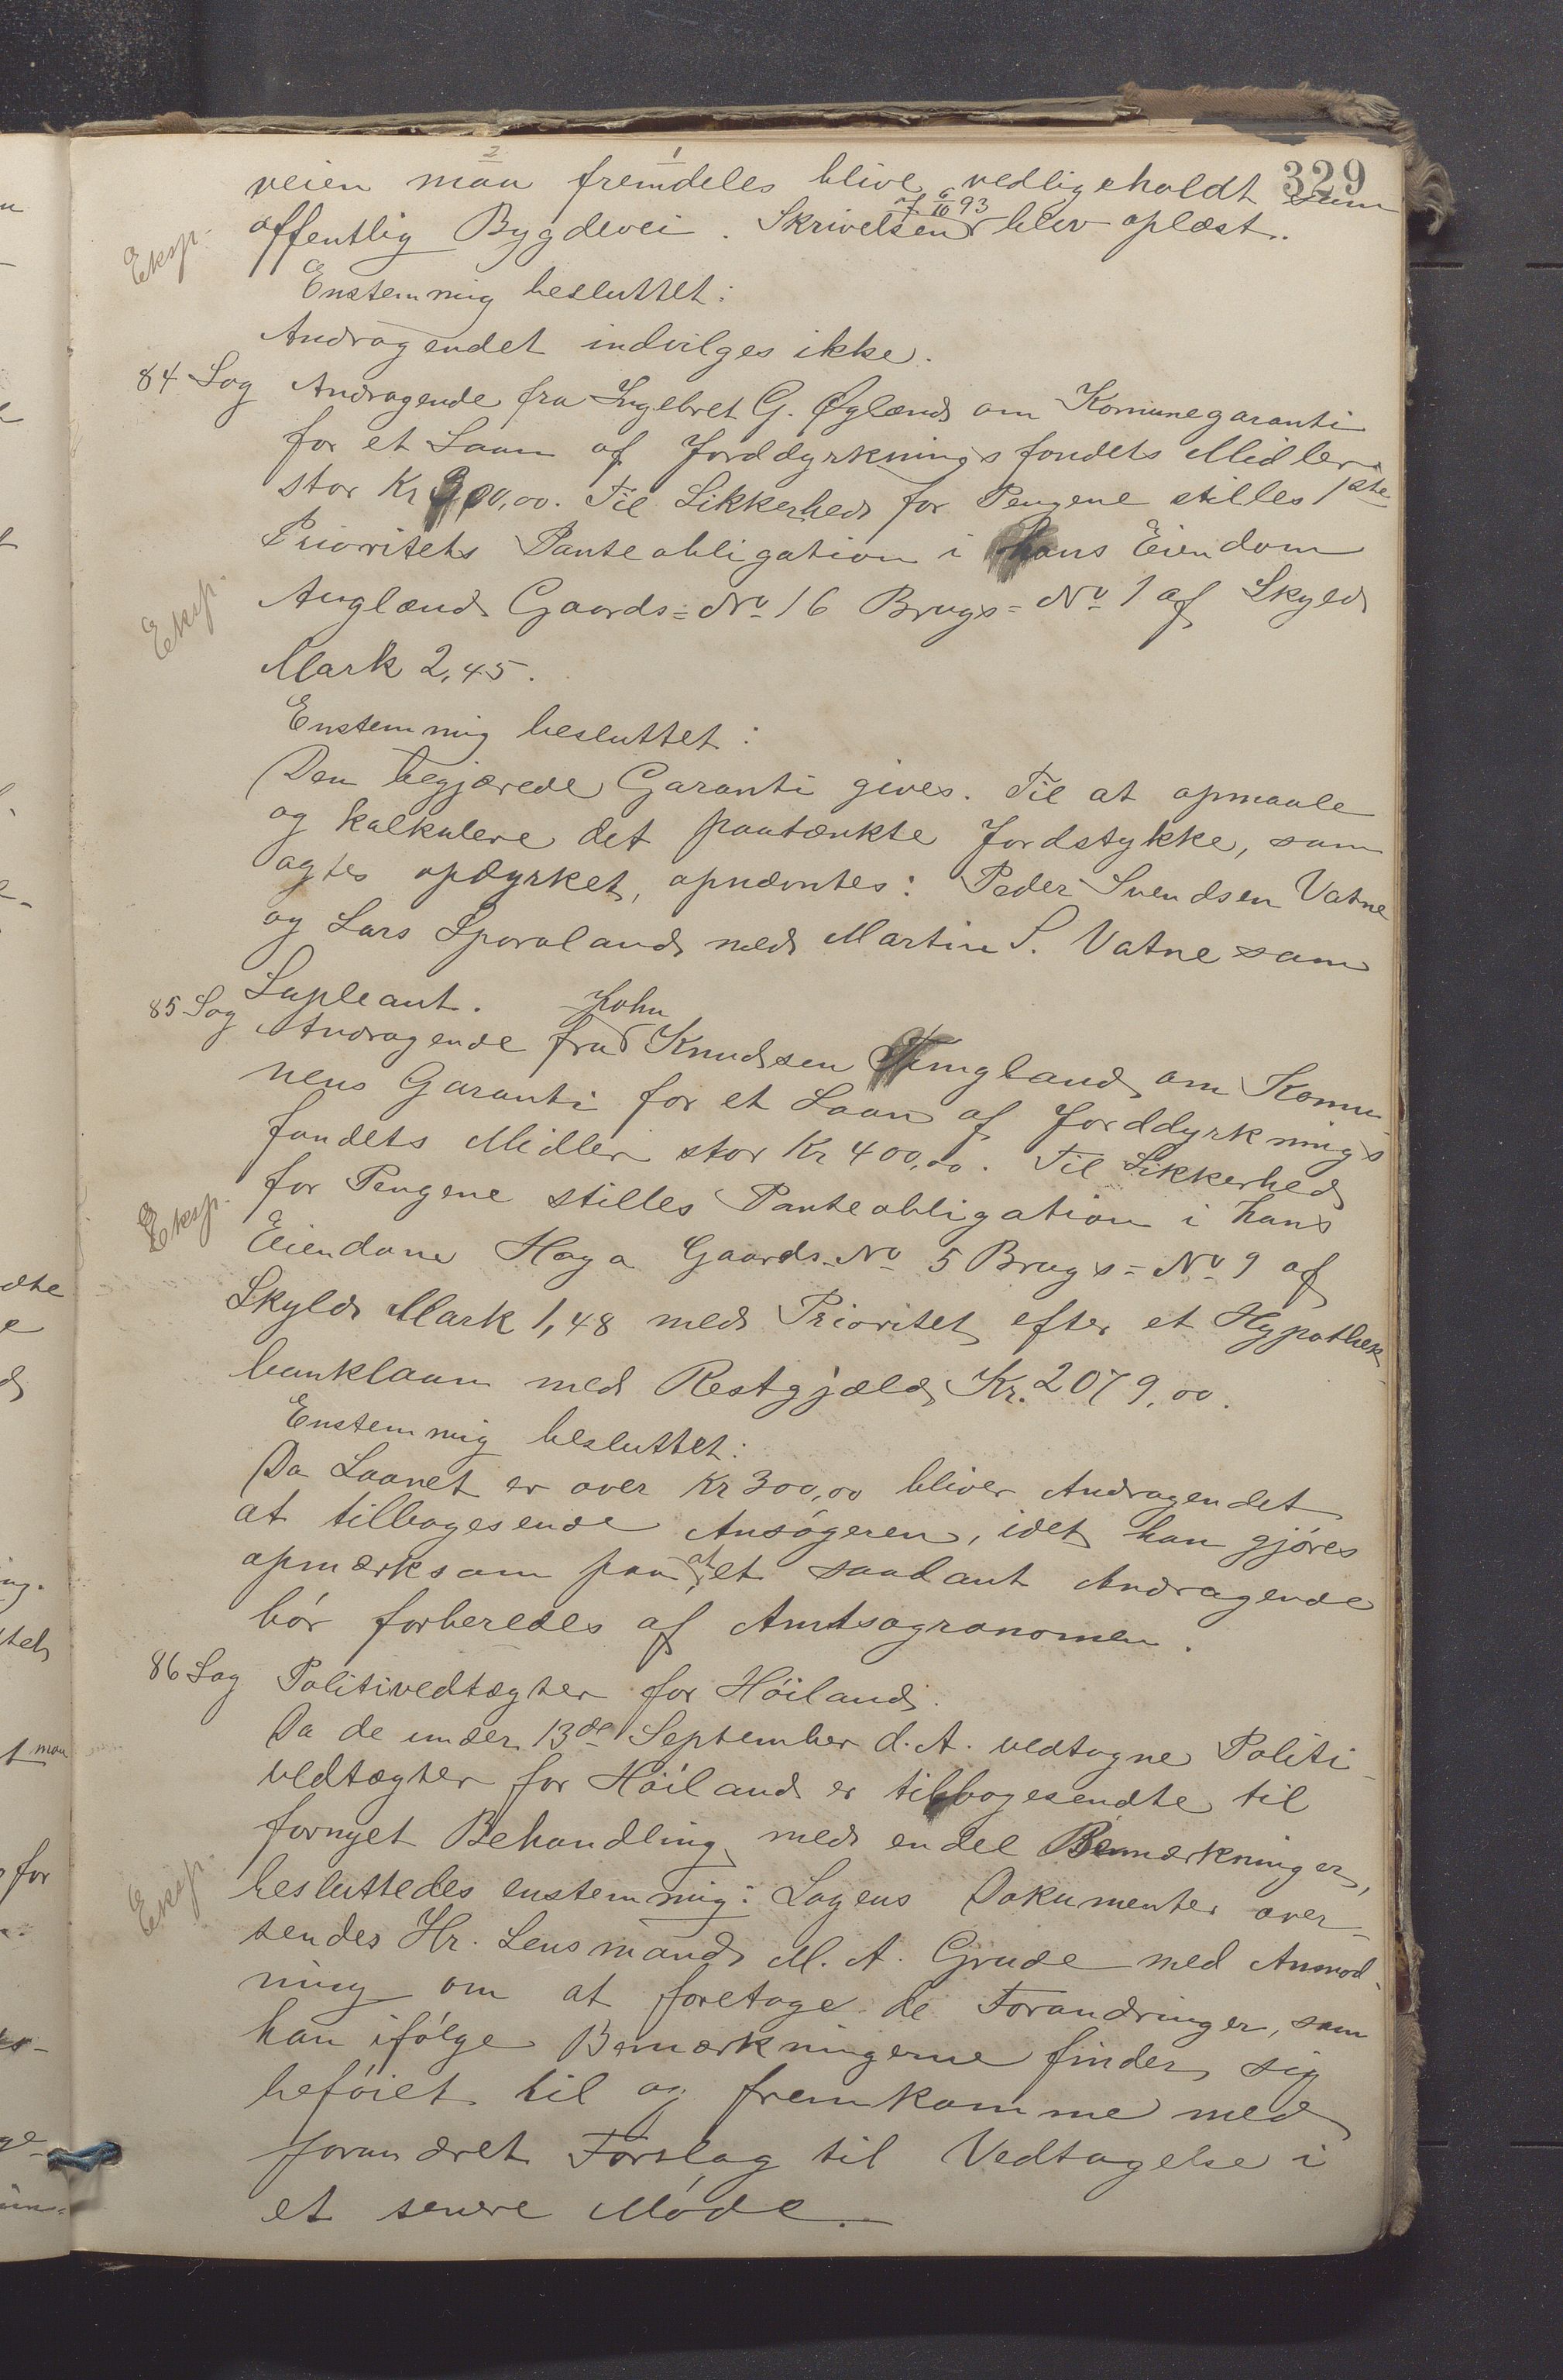 329
veien maa fremdeles blive vedligeholdt som
offentlig Bygdevei. Skrivelsen af 6/10 93 blev oplæst.
Eksp.
Enstemmig besluttet:
Andragendet indvilges ikke.
84 Sag Andragende fra Ingebret G. Øglænd om Komunegaranti
for et Laan af Jorddyrkningsfondets Midler
stor Kr 300,00. Til Sikkerhed for Pengene stilles 1ste
Prioritets Panteobligation i hans Eiendom
Auglænd Gaards=No 16 Brugs=No 1 af Skyld
Eksp.
Mark 2,45.
Enstemmig besluttet:
Den begjærede Garanti gives. Til at opmaale
og kalkulere det paatænkte Jordstykke, som
agtes opdyrket, opnævntes: Peder Svendsen Vatne
og Lars Sporaland med Martin S. Vatne som
Supleant.
85 Sag Andragende fra John Knudsen Tengland om Komu-
nens Garanti for et Laan af Jorddyrknings
fondets Midler stor Kr 400,00. Til Sikkerhed
for Pengene stilles Panteobligation i hans
Eksp.
Eiendom Hoga Gaards-No 5 Brugs=No 9 af
Skyld Mark 1,48 med Prioritet efter et Hypothek-
banklaan med Restgjæld Kr. 2079,00.
Enstemmig besluttet:
Da Laanet er over Kr 300,00 bliver Andragendet
at tilbagesende Ansøgeren, idet han gjøres
opmærksom paa at et saadant Andragende
bør forberedes af Amtsagronomen.
86 Sag Politivedtægter for Høiland.
Da de under 13de September d. A. vedtagne Politi-
vedtægter for Høiland er tilbagesendte til
fornyet Behandling med endel Bemærkninger,
Eksp.
besluttedes enstemmig: Sagens Dokumenter over-
sendes Hr. Lensmand M. A. Grude med Anmod-
ning om at foretage de Forandringer, som
han ifølge Bemærkningerne finder sig
beføiet til og fremkomme med
forandret Forslag til Vedtagelse i
et senere Møde.